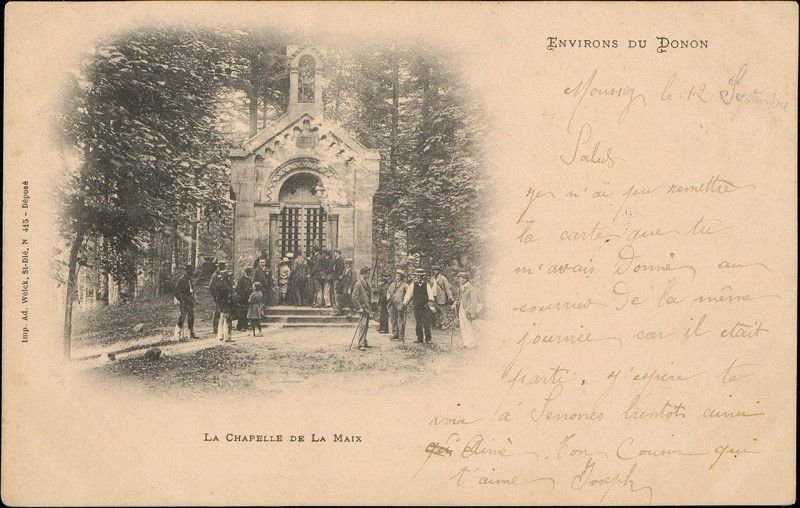 ENVIRONS DU DONON
Moussey le 12 Septembre
Salut
n'ai pu remettre
la carte que tu
m'avais Donné au
courrier de la même
journée car il etait
parti. J'espère te
voir à Senones bientôt ainsi
qu'Aimé. Ton Cousin qui
t'aime Joseph
LA CHAPELLE DE LA MAIX
Imp. Ad. Weick, St-Dié, N 445 - Déposé